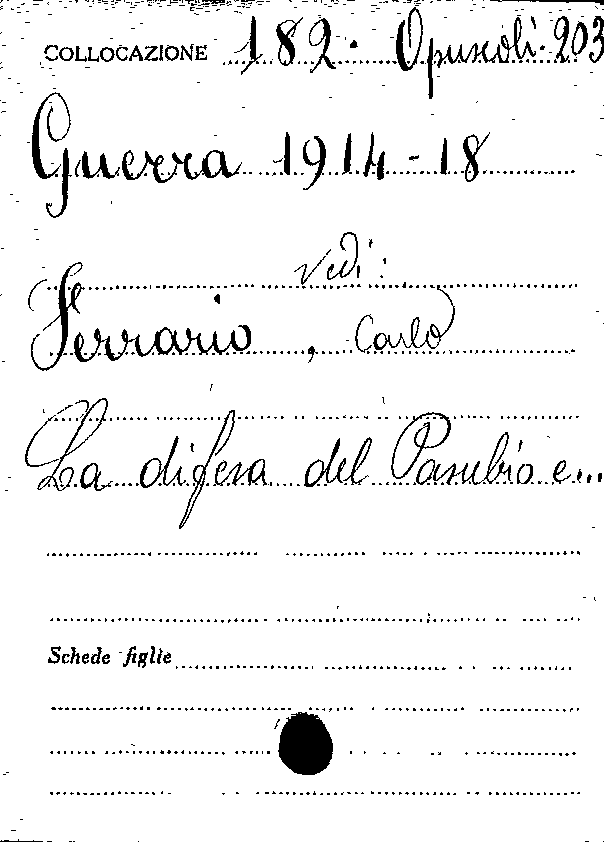 COLLOCAZIONE 182. Opuscoli. 203
Guerra 1914-18
Vedi:
Ferrario, Carlo
La difesa del Pasubio e...
Schede figlie